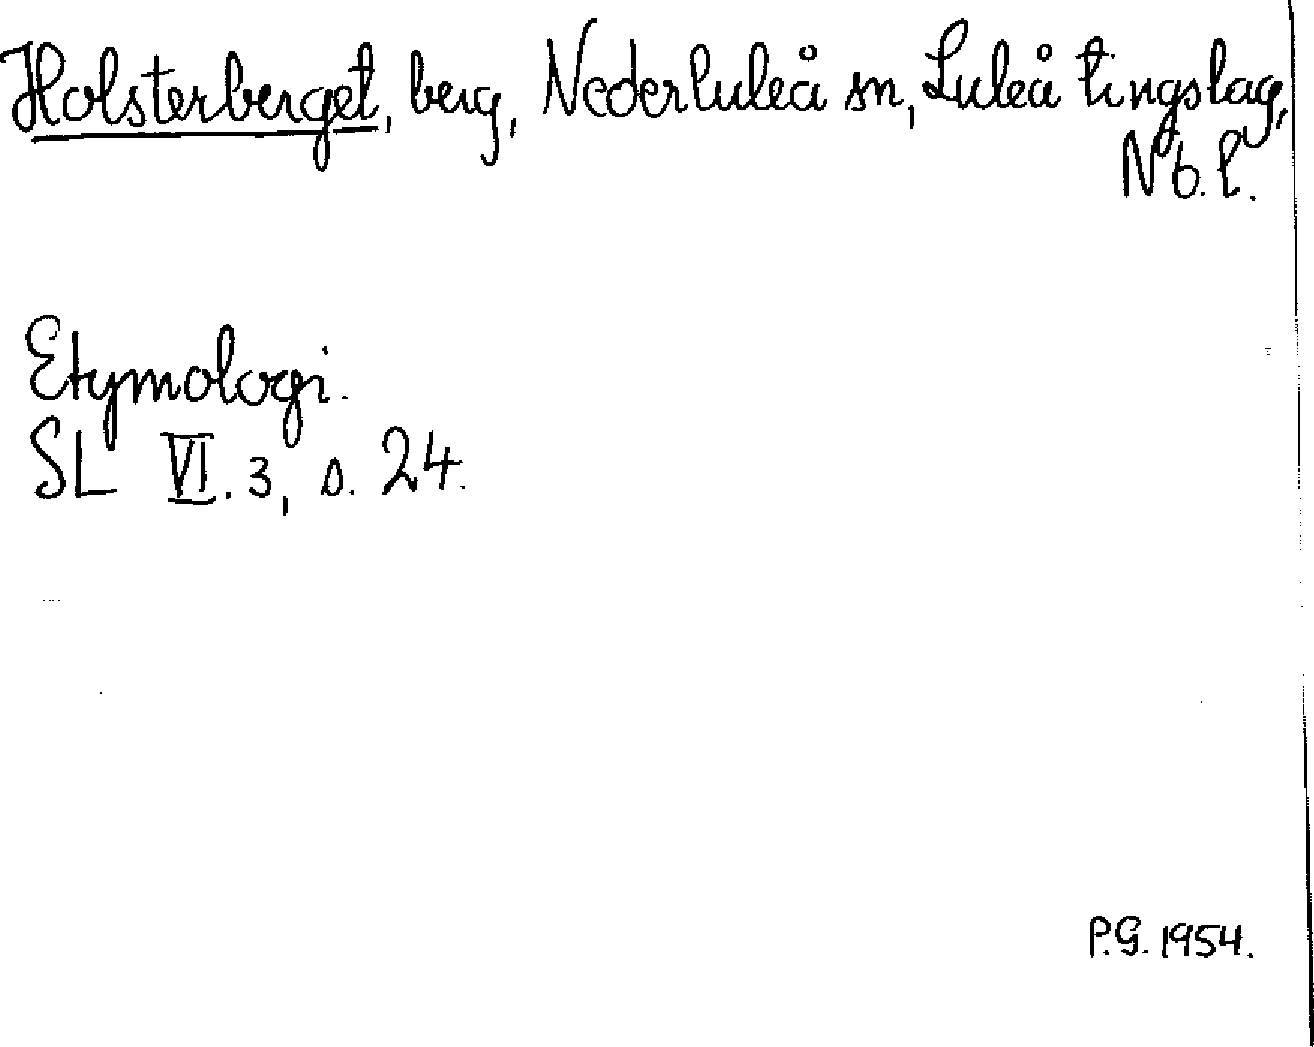 Holsterberget, berg, Nederluleå sn, Luleå tingslag,
Nb. l.
Etymologi.
SL VI. 3, s. 24.
P.G. 1954.